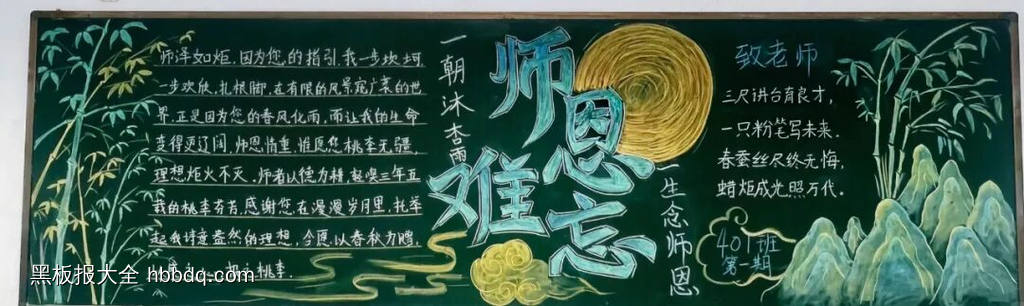 师泽如炬,因为您的指引,我一步坎坷,
一步欢欣,扎根脚,在有限的风景宽广袤的世
界,正是因为您的春风化雨,而让我的生命
变得更辽阔,师恩情重,惟愿您桃李无疆,
理想炬火不灭,师者以德为精,
我的桃李芬芳,感谢您在漫漫岁月里,托举
起我诗意盎然的理想,今愿以春秋为赠,
桃李.
一朝沐杏雨
师恩难忘
一生念师恩
致老师
三尺讲台育良才,
一只粉笔写未来.
春蚕丝尽终无悔,
蜡炬成光照万代.
401班
第一期
黑板报大全 hbbdq.com